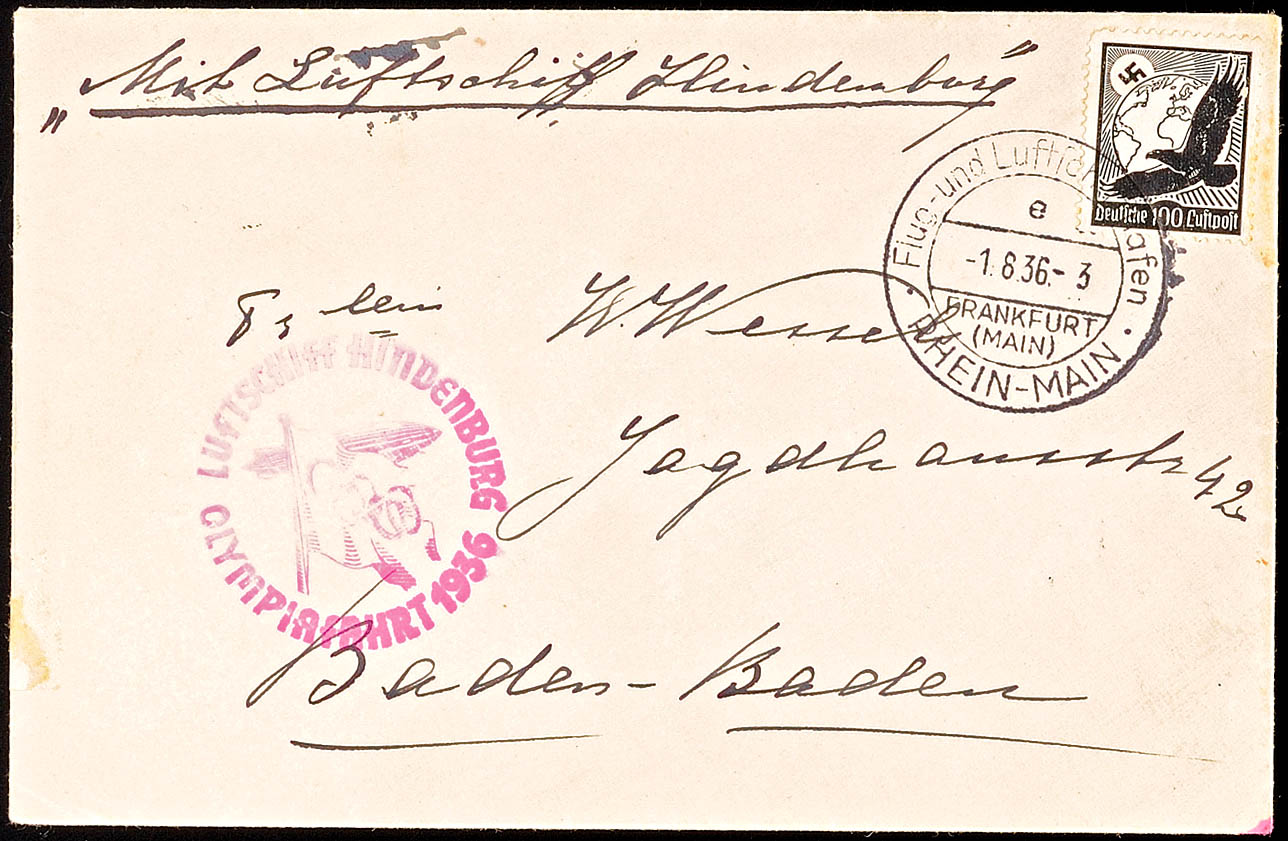 "Mit Luftschiff Hindenburg"
Deutsche 100 Luftpost
Flug- und Lufts hafen
e
-1.8.36.- 3
FRANKFURT
(MAIN)
RHEIN-MAIN
Frlein W. Wessel
LUFTSCHIFF HINDENBURG
OLYMPIAFAHRT 1936
Jagdhausstr 42
Baden-Baden